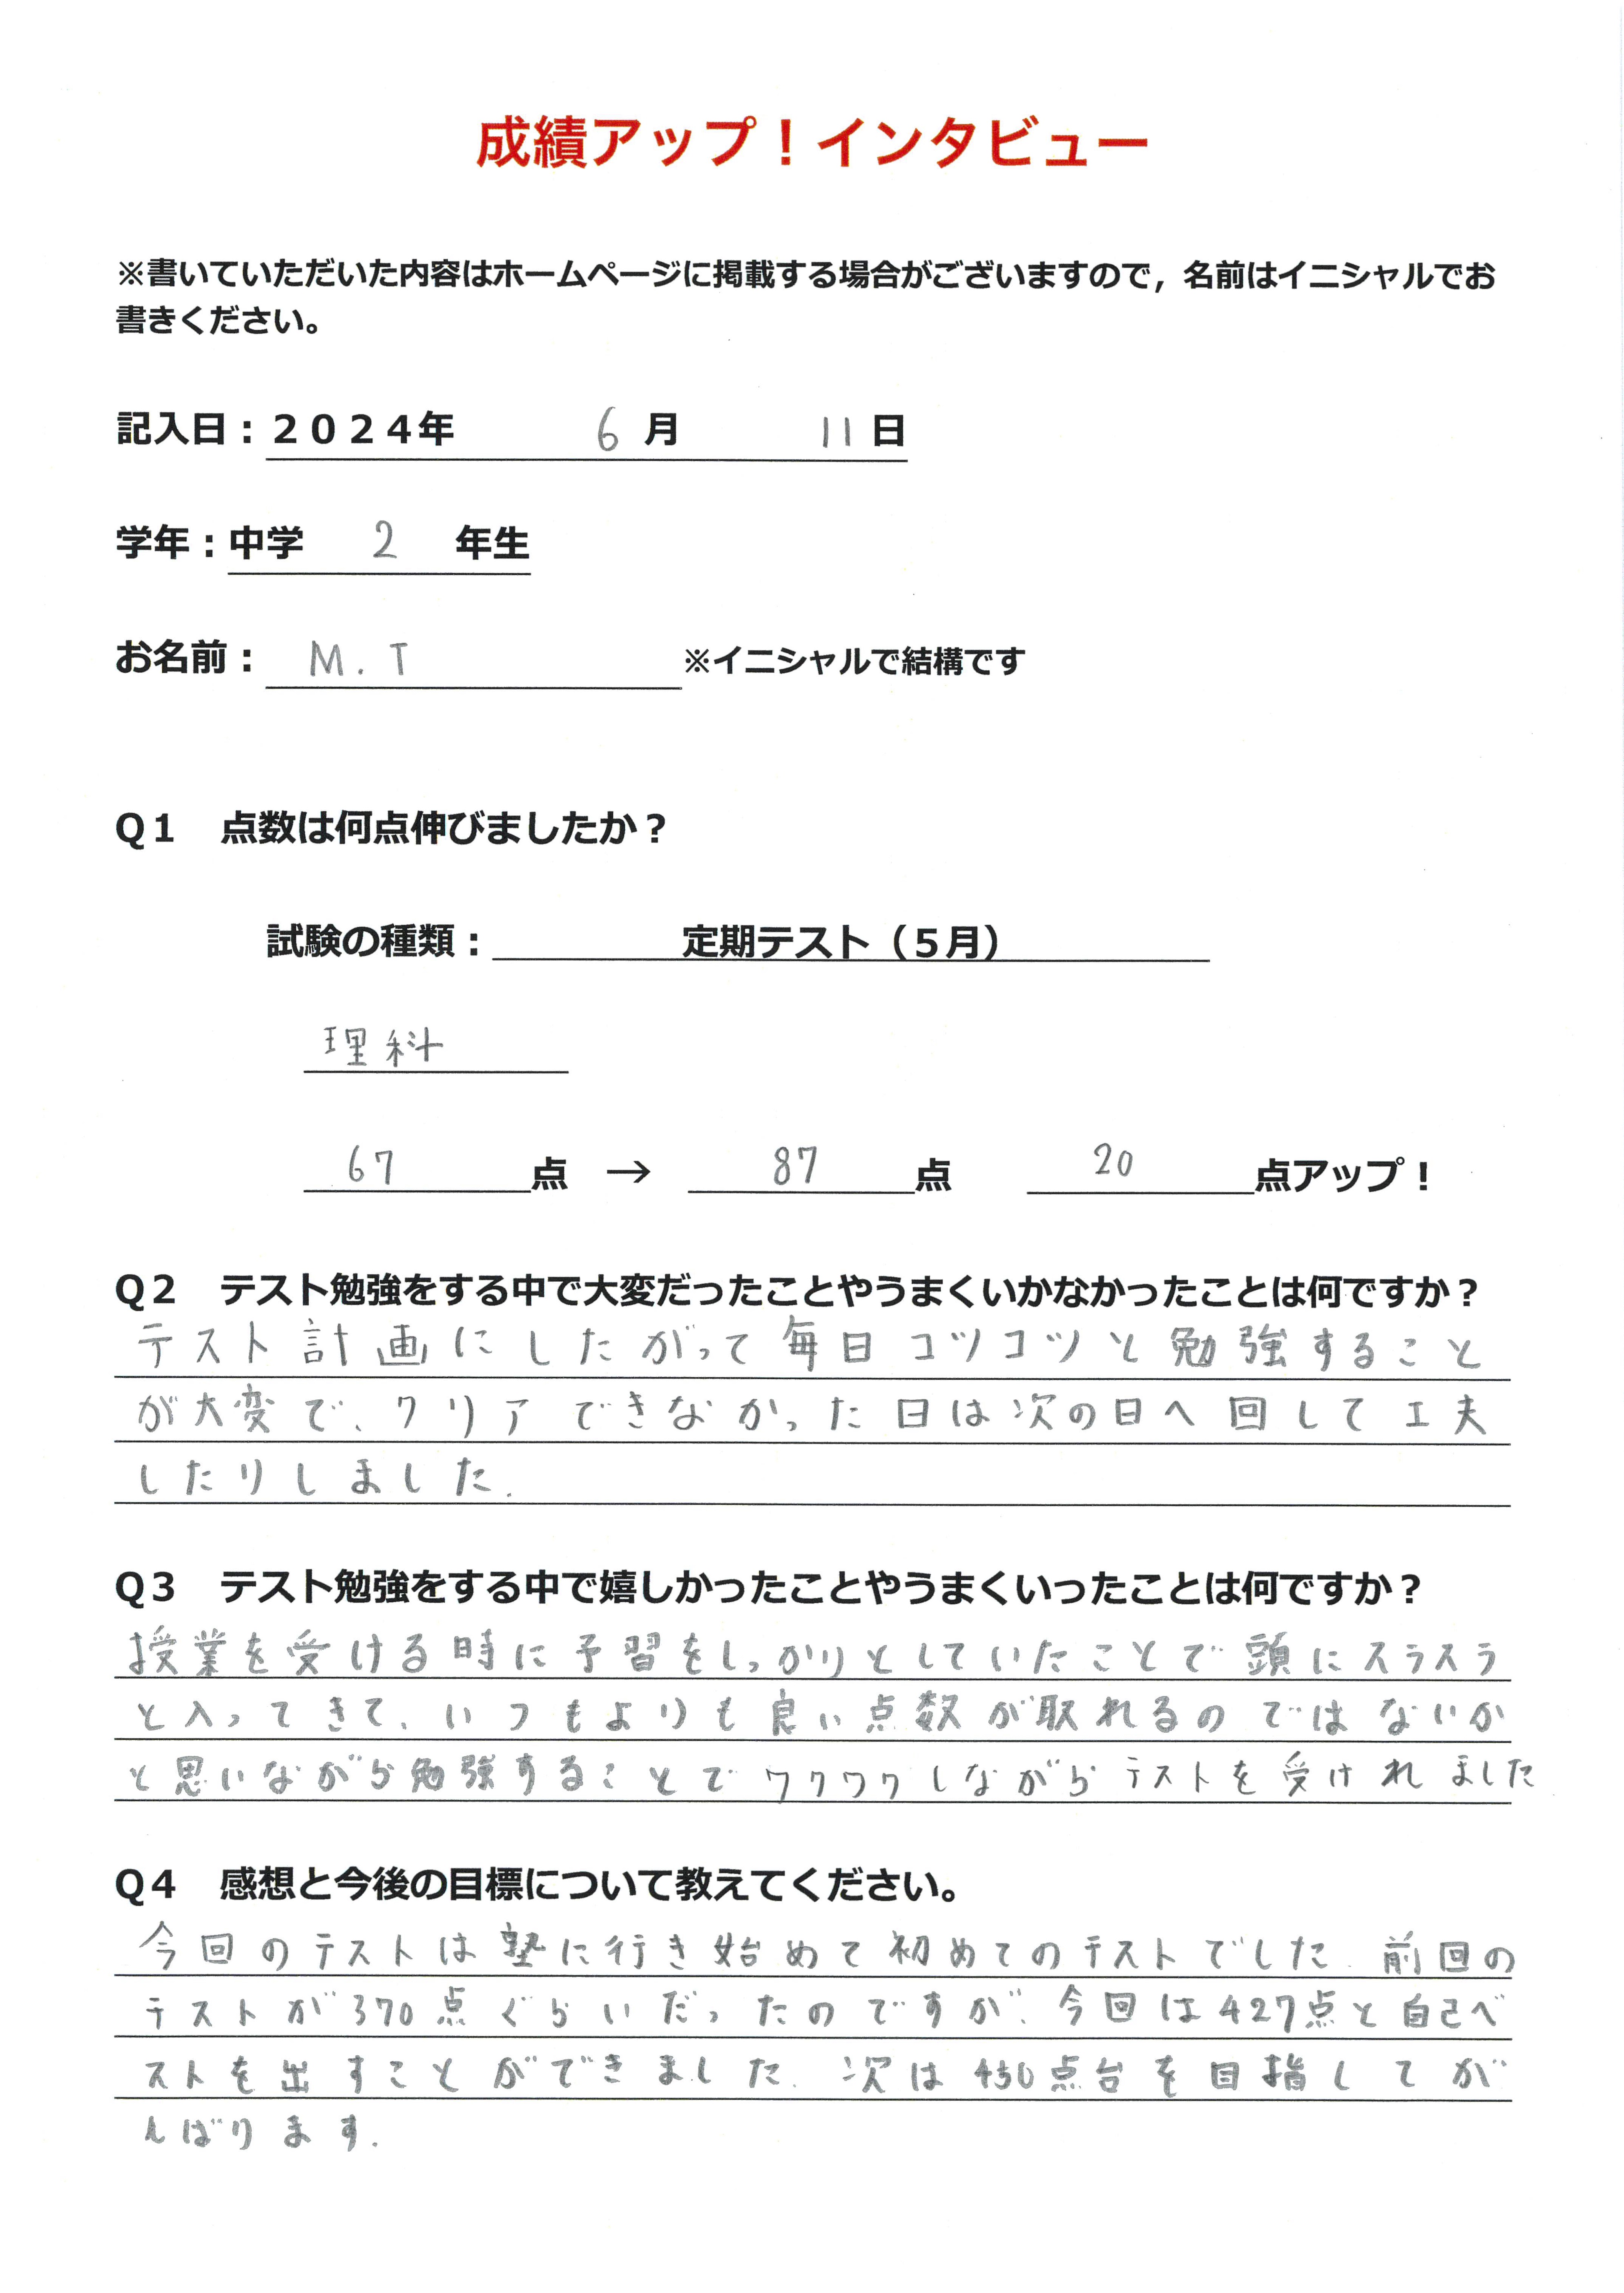 成績アップ！インタビュー
※書いていただいた内容はホームページに掲載する場合がございますので，名前はイニシャルでお
書きください。
記入日：２０２４年 6 月 11 日
学年：中学 2 年生
お名前： M.T ※イニシャルで結構です
Ｑ１ 点数は何点伸びましたか？
試験の種類： 定期テスト（５月）
理科
67 点 → 87 点 20 点アップ！
Ｑ２ テスト勉強をする中で大変だったことやうまくいかなかったことは何ですか？
テスト計画にしたがって毎日コツコツと勉強すること
が大変で、クリアできなかった日は次の日へ回して工夫
したりしました.
Ｑ３ テスト勉強をする中で嬉しかったことやうまくいったことは何ですか？
授業を受ける時に予習をしっかりとしていたことで頭にスラスラ
と入ってきて、いつもよりも良い点数が取れるのではないか
と思いながら勉強することでワクワクしながらテストを受けれました
Ｑ４ 感想と今後の目標について教えてください。
今回のテストは塾に行き始めて初めてのテストでした.前回の
テストが370点ぐらいだったのですが、今回は427点と自己ベ
ストを出すことができました.次は450点台を目指してが
んばります.